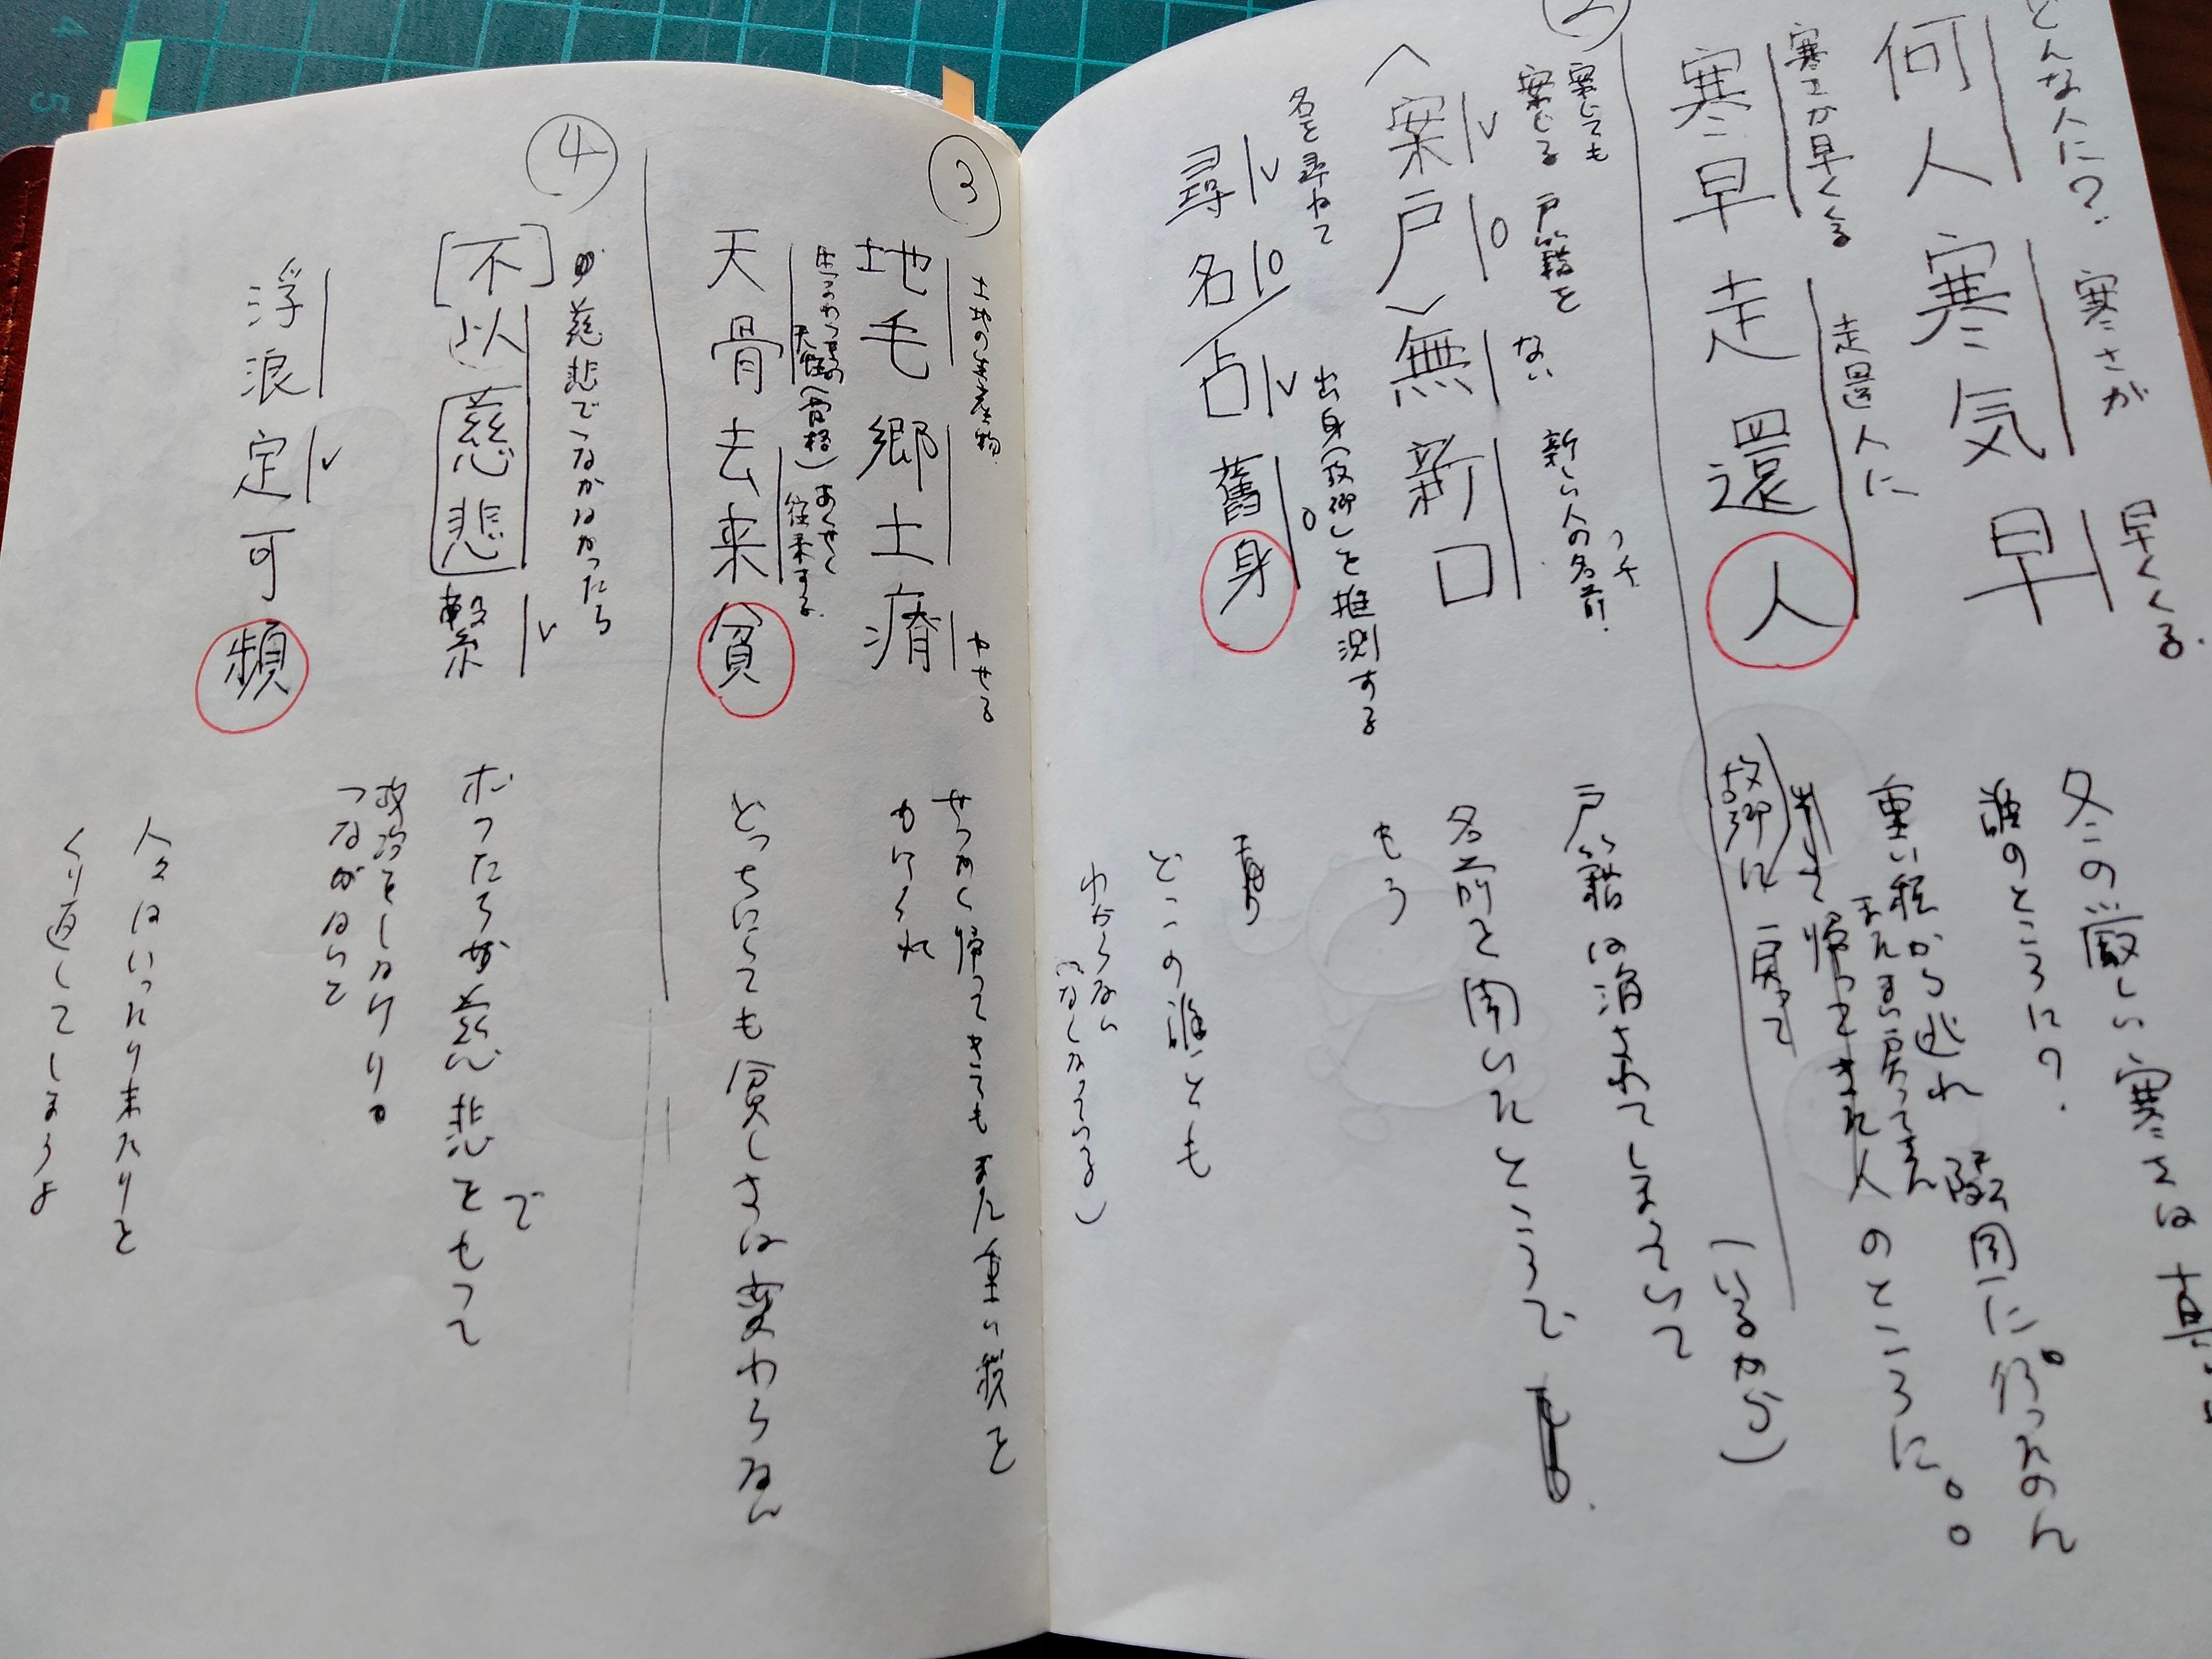 どんな人に？
寒さが
早くくる。
何人寒気早
寒さが早くくる
走還人に
寒早走還人
冬の厳しい寒さは
誰のところに？
重い税から逃れ隣国に行ったのに
帰ってきた人のところに。
故郷に戻って
(いるから)
案じても
案じる
戸籍を
ない
新しい人の名前.
〈案戸〉無新口
V
O
名を尋ねて
出身(故郷)を推測する
尋名占舊身
V
O
V
O
戸籍は消されてしまっていて
名前を聞いたところで
もう
どこの誰とも
わからない
(なしなっている)
③
土地の生産物
やせる
地毛郷土瘠
天性(骨格)
あくせく
往来する.
天骨去来貧
せっかく帰ってきてもまた重い税を
かけられ
どっちにしても貧しさは変わらない
④
慈悲でつながなかったら
[不]以慈悲繋
V
浮浪定可頻
V
ホフたちが慈悲をもって
で
政治をしなければ
つながないと
人々はいったり来たりを
くり返してしまうよ
4
5